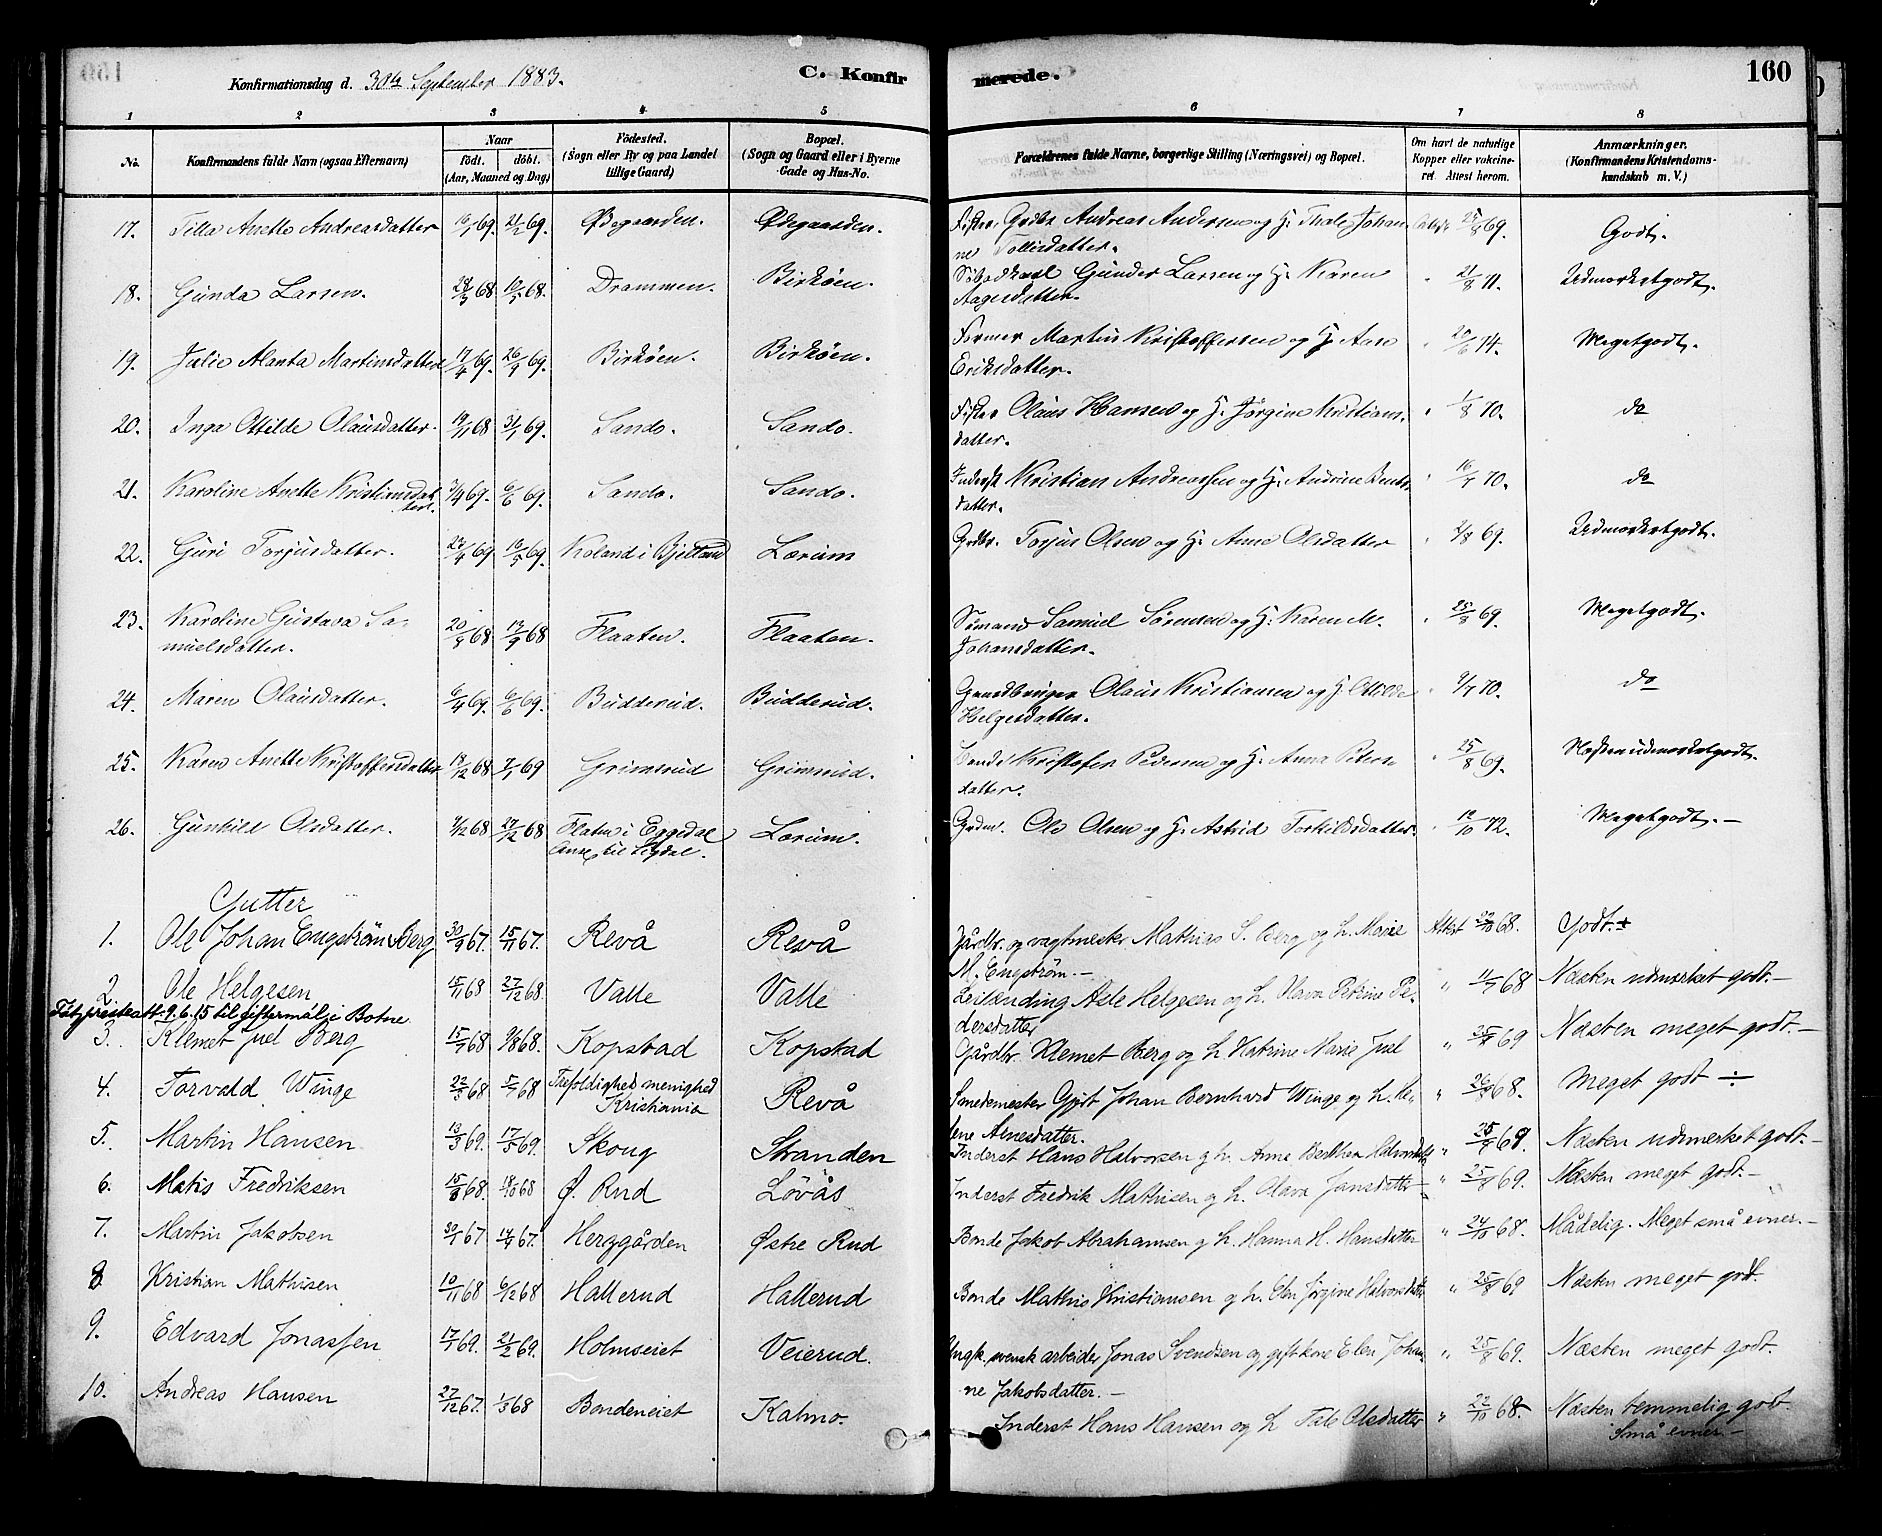 Konfirmationsdag d. 30te September 1883.
C. Konfir
merede.
160
1 2 3 4 5 6 7 8
No. Konfirmandens fulde Navn (ogsaa Efternavn) Naar födt. döbt. (Aar, Maaned og Dag) Födested. (Sogn eller By og paa Landet tillige Gaard) Bopæl. (Sogn og Gaard eller i Byerne Gade og Hus-No. Forældrenes fulde Navne, borgerlige Stilling (Næringsvei) og Bopæl. Om havt de naturlige Kopper eller vakcineret. Attest herom. Anmærkninger. (Konfirmandens Kristendomskundskab m. V.)
17. Tella Anette Andreasdatter 16/1 69. 21/2 69. Ødegaarden. Ødegaarden. Grdbr. Andreas Andersen og H. Thale Johan 25/8 69. Godt.
ne Tollisdatter.
18. Gunda Larsen. 28/3 68. 10/5 68. Drammen. Birköen. Gunder Larsen og H. Karen 21/8 71. Udmærketgodt.
Aagesdatter.
19. Julie Alanta Martinsdatter 17/4 69. 26/9 69. Birköen. Birköen. Former Martin Kristoffersen og H. Aase 20/6 74. Megetgodt.
Eriksdatter.
20. Inga Otilde Olausdatter. 19/11 68 31/1 69. Sando. Sando. Fisker Olaus Hansen og H. Jörgine Kristians- 1/8 70. do
datter.
21. Karoline Anette Kristiansdat 3/4 69. 6/6 69. Sando. Sando. Inderst Kristian Andreassen og H. Andrine Bents- 16/7 70. do
ter.
datter.
22. Guri Torjusdatter. 23/4 69. 16/5 69. Koland i Bjelland Lærum Grdbr. Torjus Olsen og H. Anne Olsdatter 2/8 69. Udmærketgodt.
23. Karoline Gustava Sa- 20/8 68. 13/9 68 Flaaten. Flaaten. Sömand Samuel Sörensen og H. Karen M. 25/8 69. Megetgodt.
muelsdatter.
Johansdatter.
24. Maren Olausdatter. 6/4 69. 6/6 69. Budderud. Budderud. Gaardbruger Olaus Kristiansen og H. Otilde 9/7 70. do
Helgesdatter.
25. Karen Anette Kristoffersdatter 13/12 68 7/1 69 Grimsrud Grimsrud. Bonde Kristofer Pedersen og H. Anna Peters- 25/8 69. Næstenudmærketgodt.
datter.
26. Gunhild Olsdatter. 4/12 68 27/12 68 Flaten i Eggedal Lærum. Grdm. Ole Olsen og H. Astrid Torkildsdatter. 12/10 72. Megetgodt.-
Anex til Sigdal.
Gutter
1. Ole Johan Engström Berg 30/9 67. 15/11 67. Revå Revå Gårdbr. og vagtmester Mathias S. Berg og h. Marie Attest 22/10 68. Godt.+
M. Engström.-
2. Ole Helgesen 15/11 68 27/12 68. Valle Valle Leilending Asle Helgesen og h. Olava Petrine Pe- " 11/7 68 Næsten udmærket godt.-
dersdatter
Fåt prestatt. 9.6.15 til giftermål i Botne.
3. Klemet Juel Berg 15/7 68 9/8 68. Kopstad Kopstad Gårdbr. Klemet Berg og h. Katrine Marie Juel " 25/8 69 Næsten meget godt.-
4. Torvald Winge 22/3 68 5/7 68 Trefoldighed menighed Revå Smedemester Gjört Johan Bernhard Winge og h. He- " 26/8 68. Meget godt ÷
Kristiania
lene Arnesdatter.
5. Martin Hansen 13/3 69. 17/5 69. Skoug Stranden Inderst Hans Halvorsen og h. Anne Berthea Halvorsdatter " 25/8 69 Næsten udmerket godt.-
6. Matis Fredriksen 15/8 68. 18/10 68 Ø. Rud Lövås Inderst Fredrik Mathisen og h. Olava Jansdatter " 25/8 69. Næsten meget godt.-
7. Martin Jakobsen 30/1 67 14/4 67. Herggården Østre Rud Bonde Jakob Abrahamsen og h. Hanna H. Hansdatter " 24/10 68. Mådelig. Meget små evner.-
8 Kristian Mathisen 10/11 68 6/12 68 Hallerud Hallerud Bonde Mathis Kristiansen og h. Elen Jörgine Halvorsdatter " 25/8 69 Næsten meget godt.
9. Edvard Jonassen 17/1 69. 21/2 69. Holmseiet Veierud. Ungk. svensk arbeider Jonas Svendsen og gift kone Elen Johan- " 25/8 69. Næsten meget godt.
ne Jakobsdatter.-
10. Andreas Hansen 27/12 67. 1/3 68 Bondeneiet Kalmo. Inderst Hans Hansen og h. Olsdatter " 22/10 68. Næsten temmelig godt.
Små evner.-